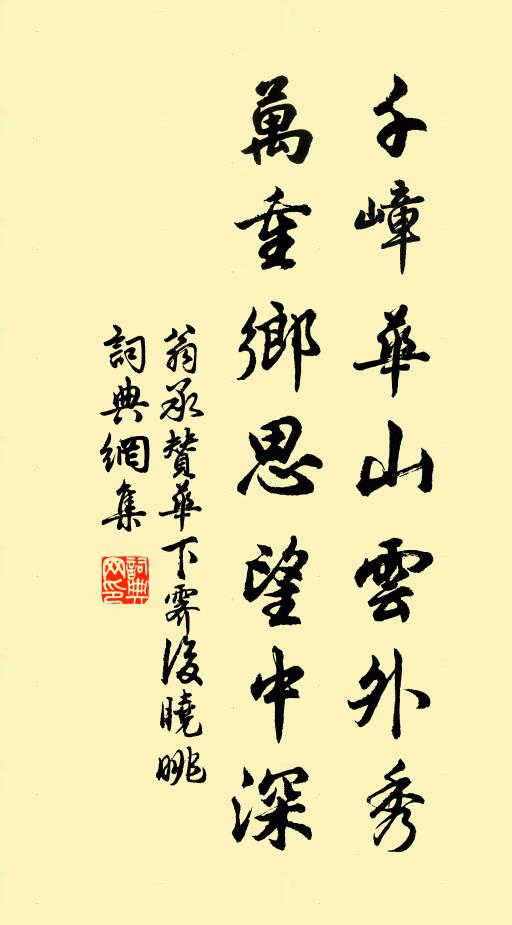 千嶂華山雲外秀
萬重鄉思望中深
翁承贊華下霽後曉眺
詞典網集
詞典網印